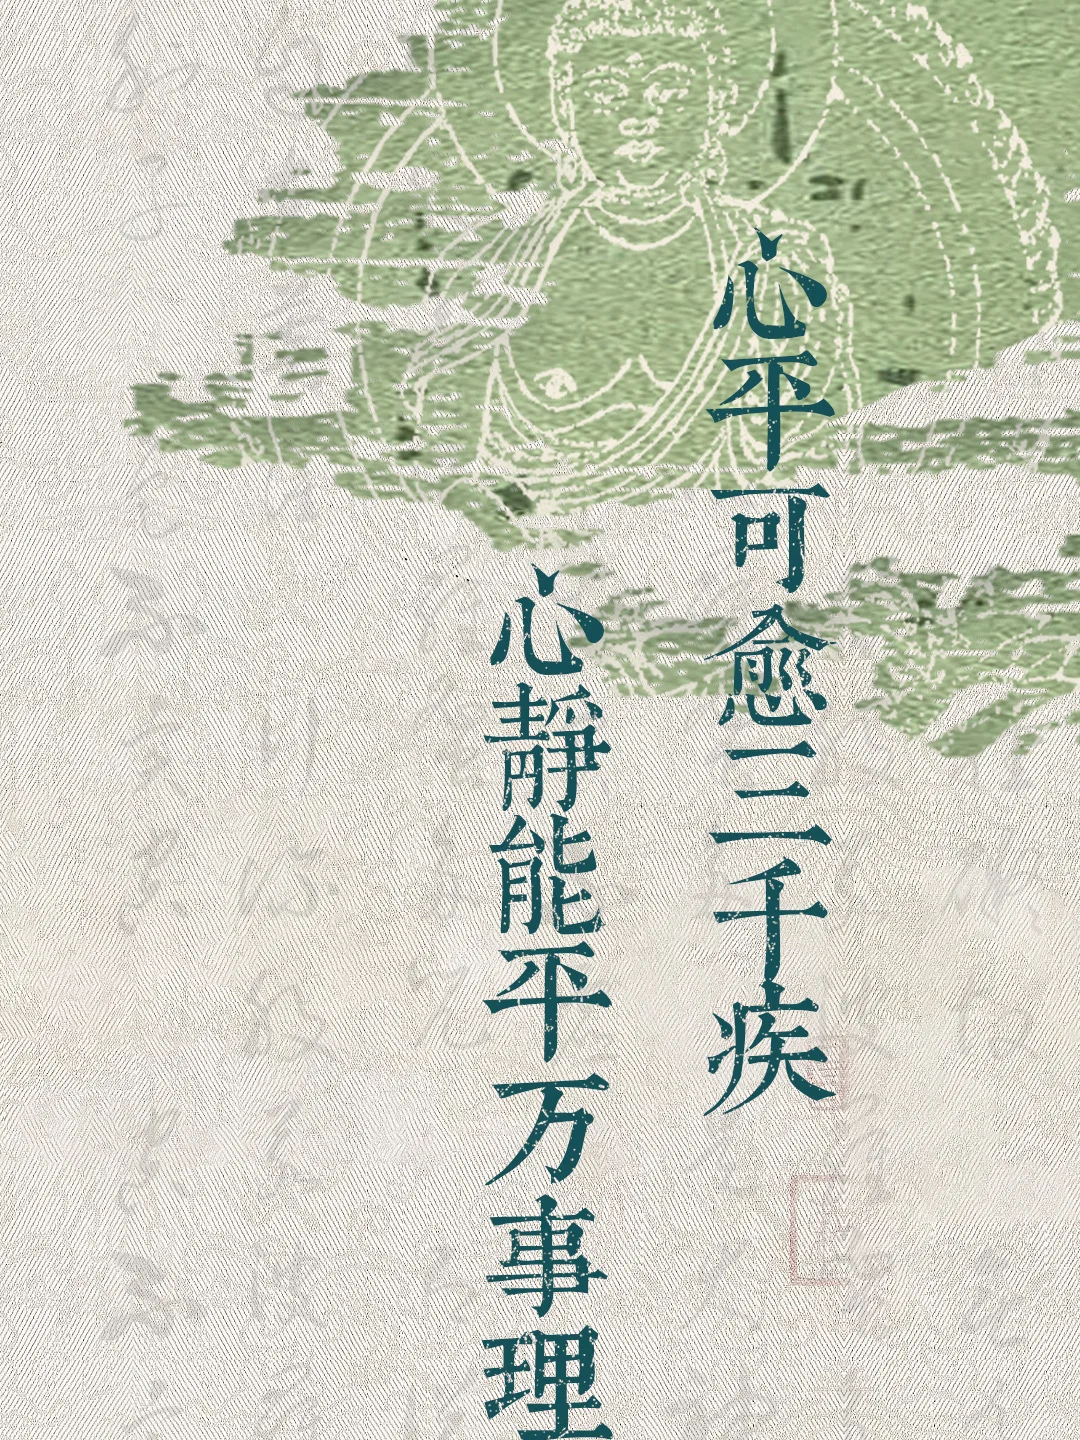 心平可愈三千疾
心靜能平万事理